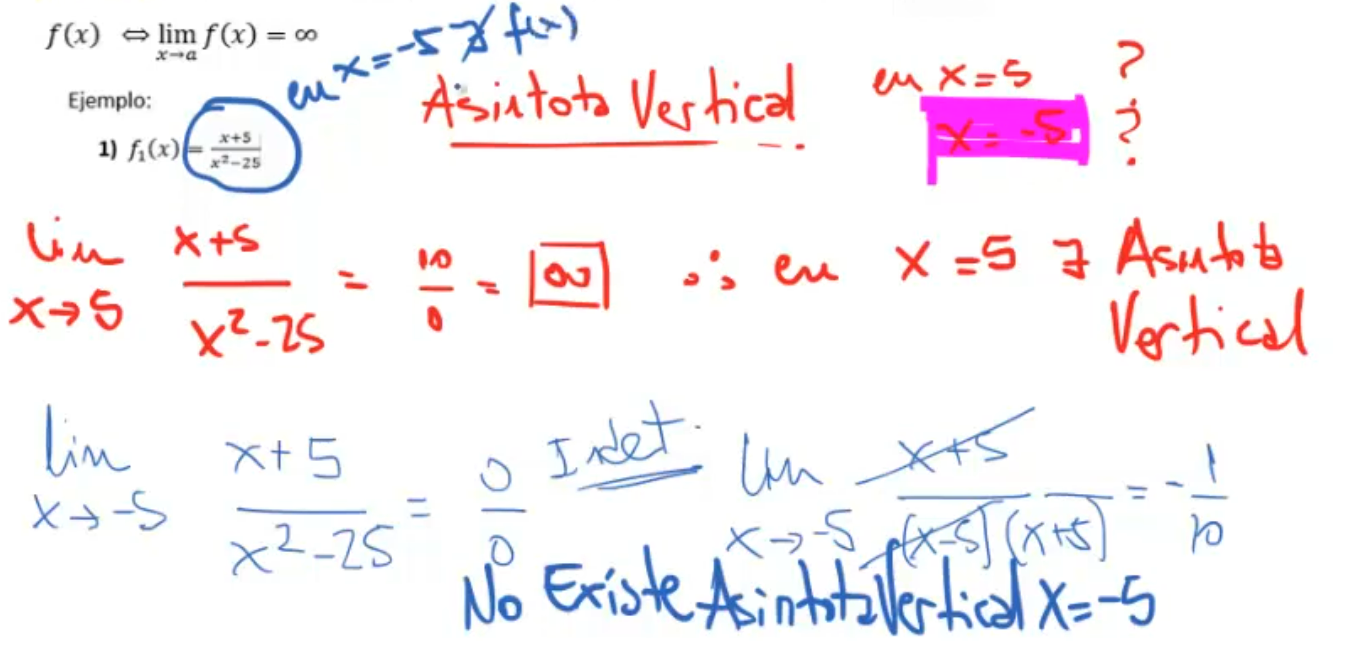 f(x) ⇔ lim x→a f(x) = ∞
en x = -5 ∄ f(x)
Ejemplo:
Asintota Vertical
en x = 5 ?
x = -5 ?
1) f₁(x) = (x+5)/(x²−25)
lim x→5 (x+5)/(x²-25) = 10/0 = ∞ ∴ en x = 5 ∃ Asintota
Vertical
lim x→-5 (x+5)/(x²-25) = 0/0 Indet. lim x→-5 (x+5)/((x-5)(x+5)) = -1/10
No Existe Asintota Vertical x = -5